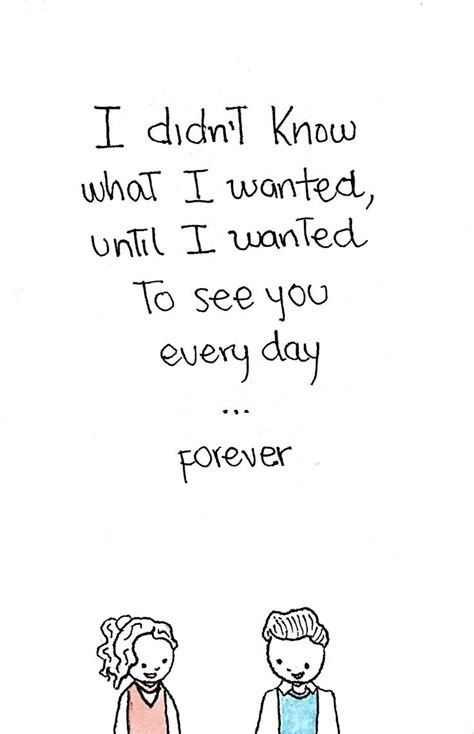 I didn't know
what I wanted,
until I wanted
To see you
every day
...
forever